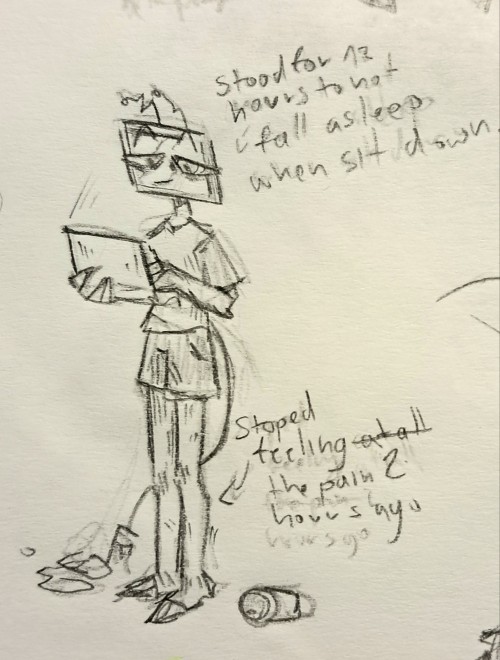 stood for 13
hours to not
fall asleep
when sit down
Stoped
feeling at all
the pain 2
hours ago